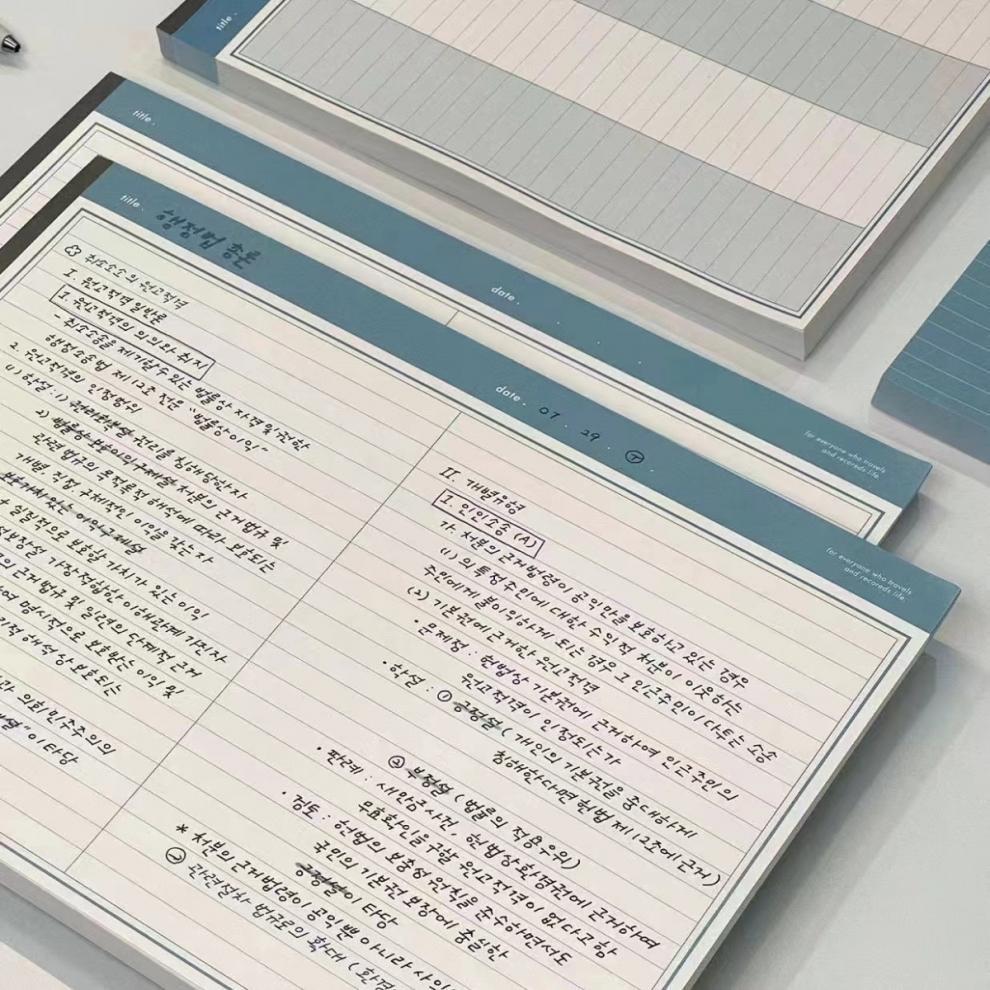 title.
title.
date.
for everyone who travels
and recoreds life.
title. 행정법 총론
date. 07. 29. ㉦
for everyone who travels
and recoreds life.
취소소송의 원고적격
I. 원고적격일반론
1. 원고적격의 의의와 취지
- 취소소송을 제기할 수 있는 법률상 자격을 권한
행정소송법 제12조 전문 "법률상 이익"
2. 원고적격의 인정범위
(1) 학설 : 1) 권리를 침해당한자
2) 처분의 근거법규 및
관련법규의 목적론적 해석에 따라 보호되는
개별, 직접, 구체적인 이익을 갖는자
실질적으로 보호할 가치가 있는 이익
가장 적합한 이해관계 가진자
근거법규 및 일련의 단계적 근거
명시적으로 보호받는 이익 및
해석상 보호되는
의회민주주의의
이 타당
II. 개별유형
1. 인인소송 (A)
가. 처분의 근거법령이 공익만을 보호하고 있는 경우
(1) 의 특정수리에 대한 수익적 처분이 이웃하는
주민에게 불이익하게 되는 경우 그 인근주민이 다투는 소송
(2) 기본권에 근거한 원고적격
• 문제점 : 헌법상 기본권에 근거하여 인근주민의
원고적격이 인정되는가
• 학설 : ① 긍정설 ( 개인의 기본권을 중대하게
침해한다면 헌법 제12조에 근거)
② 부정설 ( 법률의 적용우위)
• 판례 : 새만금사건, 헌법상환경권에 근거하여
무효확인을 구할 원고적격이 없다고함
• 검토 : 헌법의 보충성 원칙을 준수하면서도
국민의 기본권 보장에 충실한
긍정설이 타당
* 처분의 근거법령이 공익뿐 아니라 사이
① 관련절차 법규로의 확대 (환경